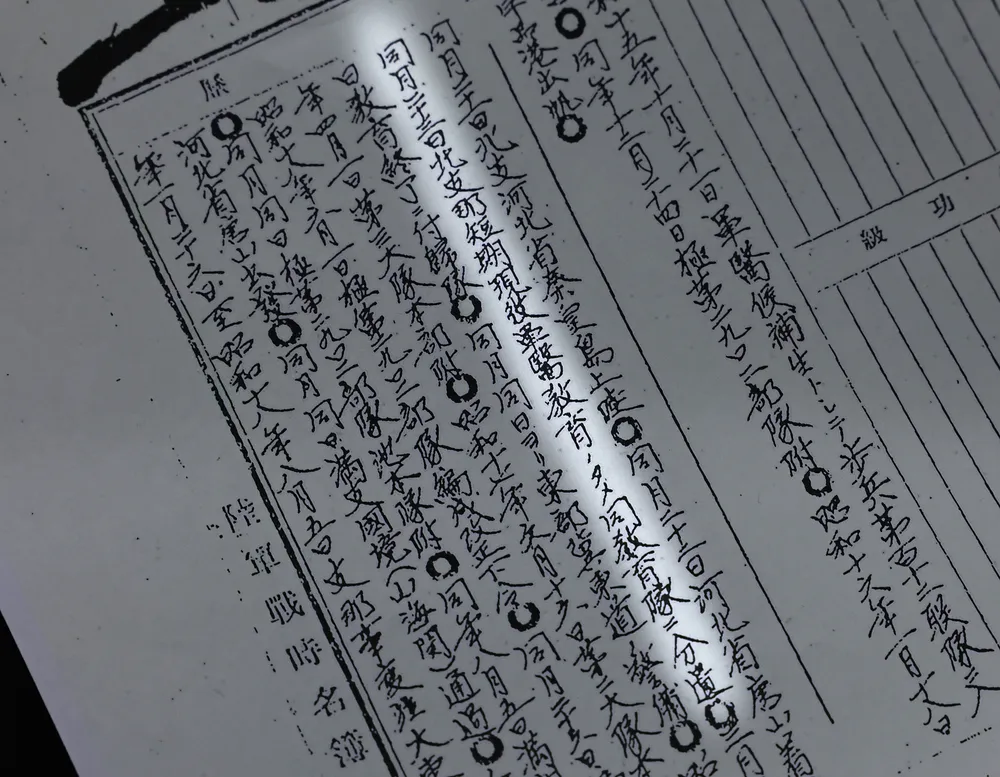 功
級
十五年十月二十一日軍醫候補生トシテ歩兵第百十二聯隊ニ入
同年十二月二十四日極第二九〇二部隊附〇昭和十六年一月十八日
品港出帆〇
同月二十一日北支河北省秦皇島上陸〇同月二十二日河北省唐山着
同月二十三日北支那短期現役軍醫教育ノタメ同教育隊ニ分遣〇三月
日教育終了ニ付歸隊〇同月同日ヨリ東部冀東道ノ警備〇昭
年四月一日第三大隊本部附〇昭和十七年六月十六日第二大隊本
昭和十八年六月一日極第二九〇二部隊編成改正下令〇同月二十五日
〇同月同日極第二九〇二部隊池本隊附〇同年八月五日滿
河北省唐山出發〇同月同日滿支國境(山海関)通過〇
年一月二十六日至昭和十八年八月五日支那事變
陸軍戰時名簿